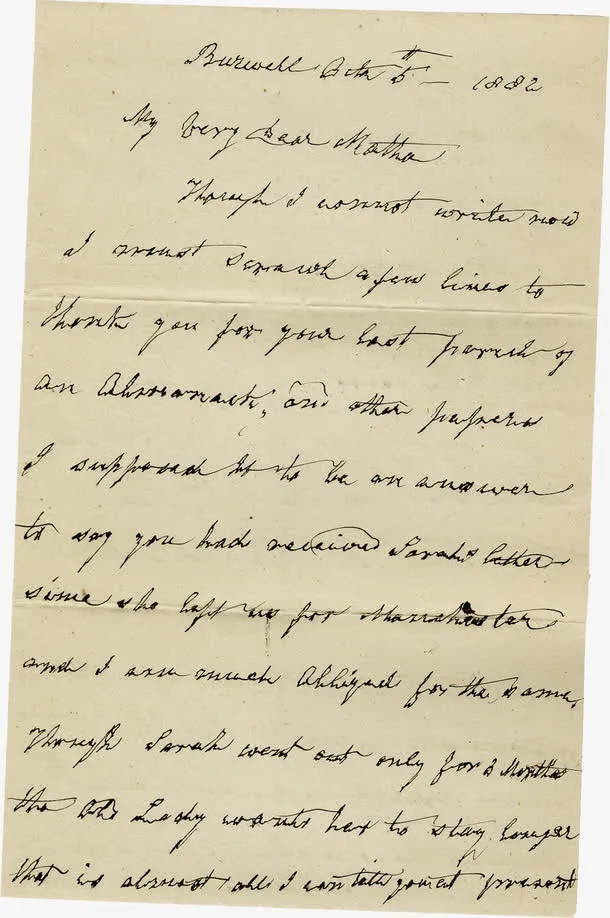 Burwell Octr 5th — 1882
My Very Dear Martha
Though I cannot write now
I must scrawl a few lines to
thank you for your last parcel of
an Almanack, and other papers
I supposed it to be an answer
to say you had received Sarah's letter
since she left us for Manchester
and I am much obliged for the same,
Though Sarah went out only for 3 Months
the old Lady wants her to stay longer
that is almost all I can tell you at present